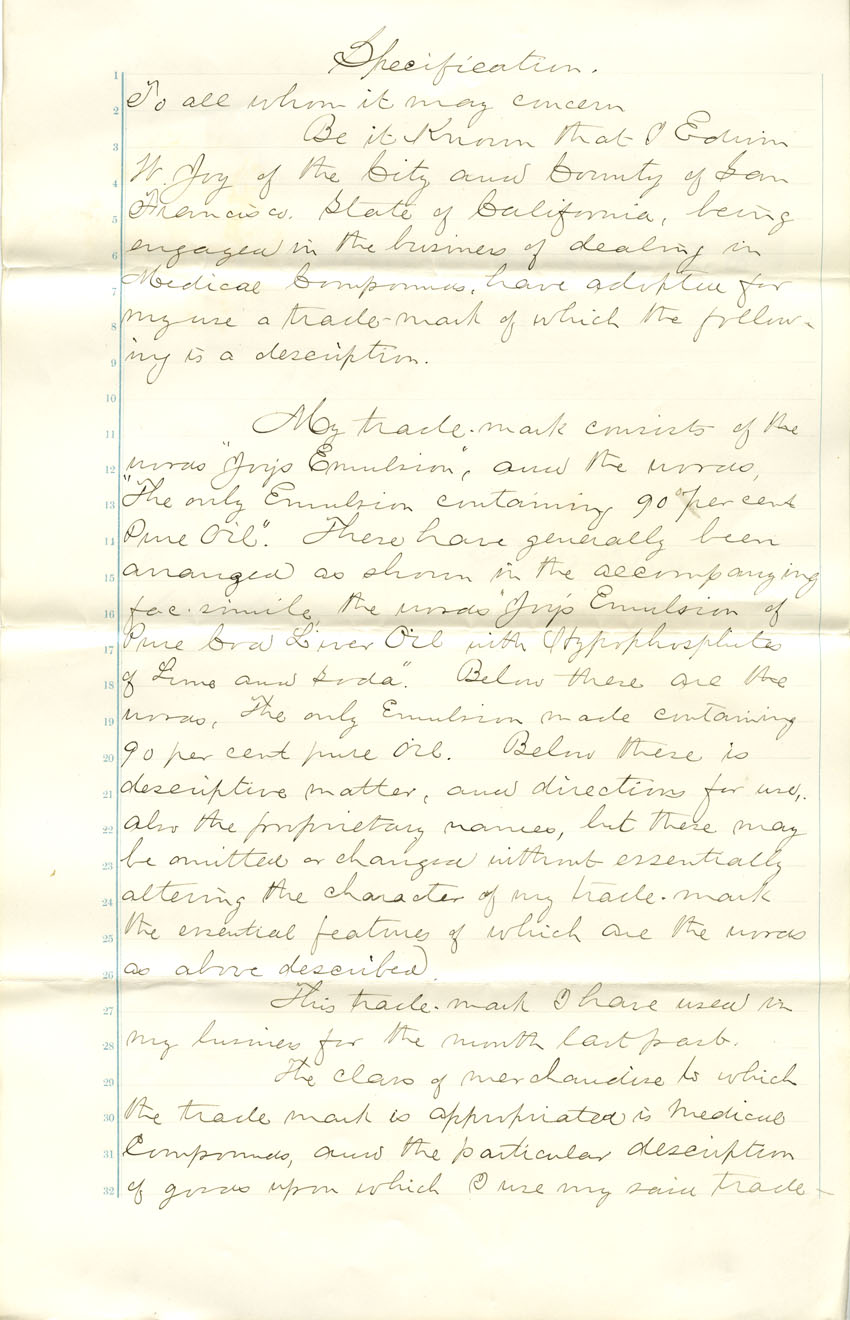 Specification.
1
To all whom it may concern
2
Be it Known that I Edwin
3
W. Joy of the City and County of San
4
Francisco. State of California, being
5
engaged in the business of dealing in
6
Medical Compounds, have adopted for
7
my use a trade-mark of which the follow-
8
ing is a description.
9
10
My trade-mark consists of the
11
words "Joy's Emulsion", and the words,
12
"The only Emulsion containing 90 per cent
13
Pure Oil". These have generally been
14
arranged as shown in the accompanying
15
fac-simile, the words "Joy's Emulsion of
16
Pure Cod Liver Oil with Hypophosphites
17
of Lime and Soda". Below these are the
18
words, The only Emulsion made containing
19
90 per cent pure Oil. Below these is
20
descriptive matter, and directions for use,
21
also the proprietary names, but these may
22
be omitted or changed without essentially
23
altering the character of my trade-mark
24
the essential features of which are the words
25
as above described.
26
This trade-mark I have used in
27
my business for the month last past.
28
The class of merchandise to which
29
the trade mark is appropriated is Medical
30
Compounds, and the particular description
31
of goods upon which I use my said trade-
32